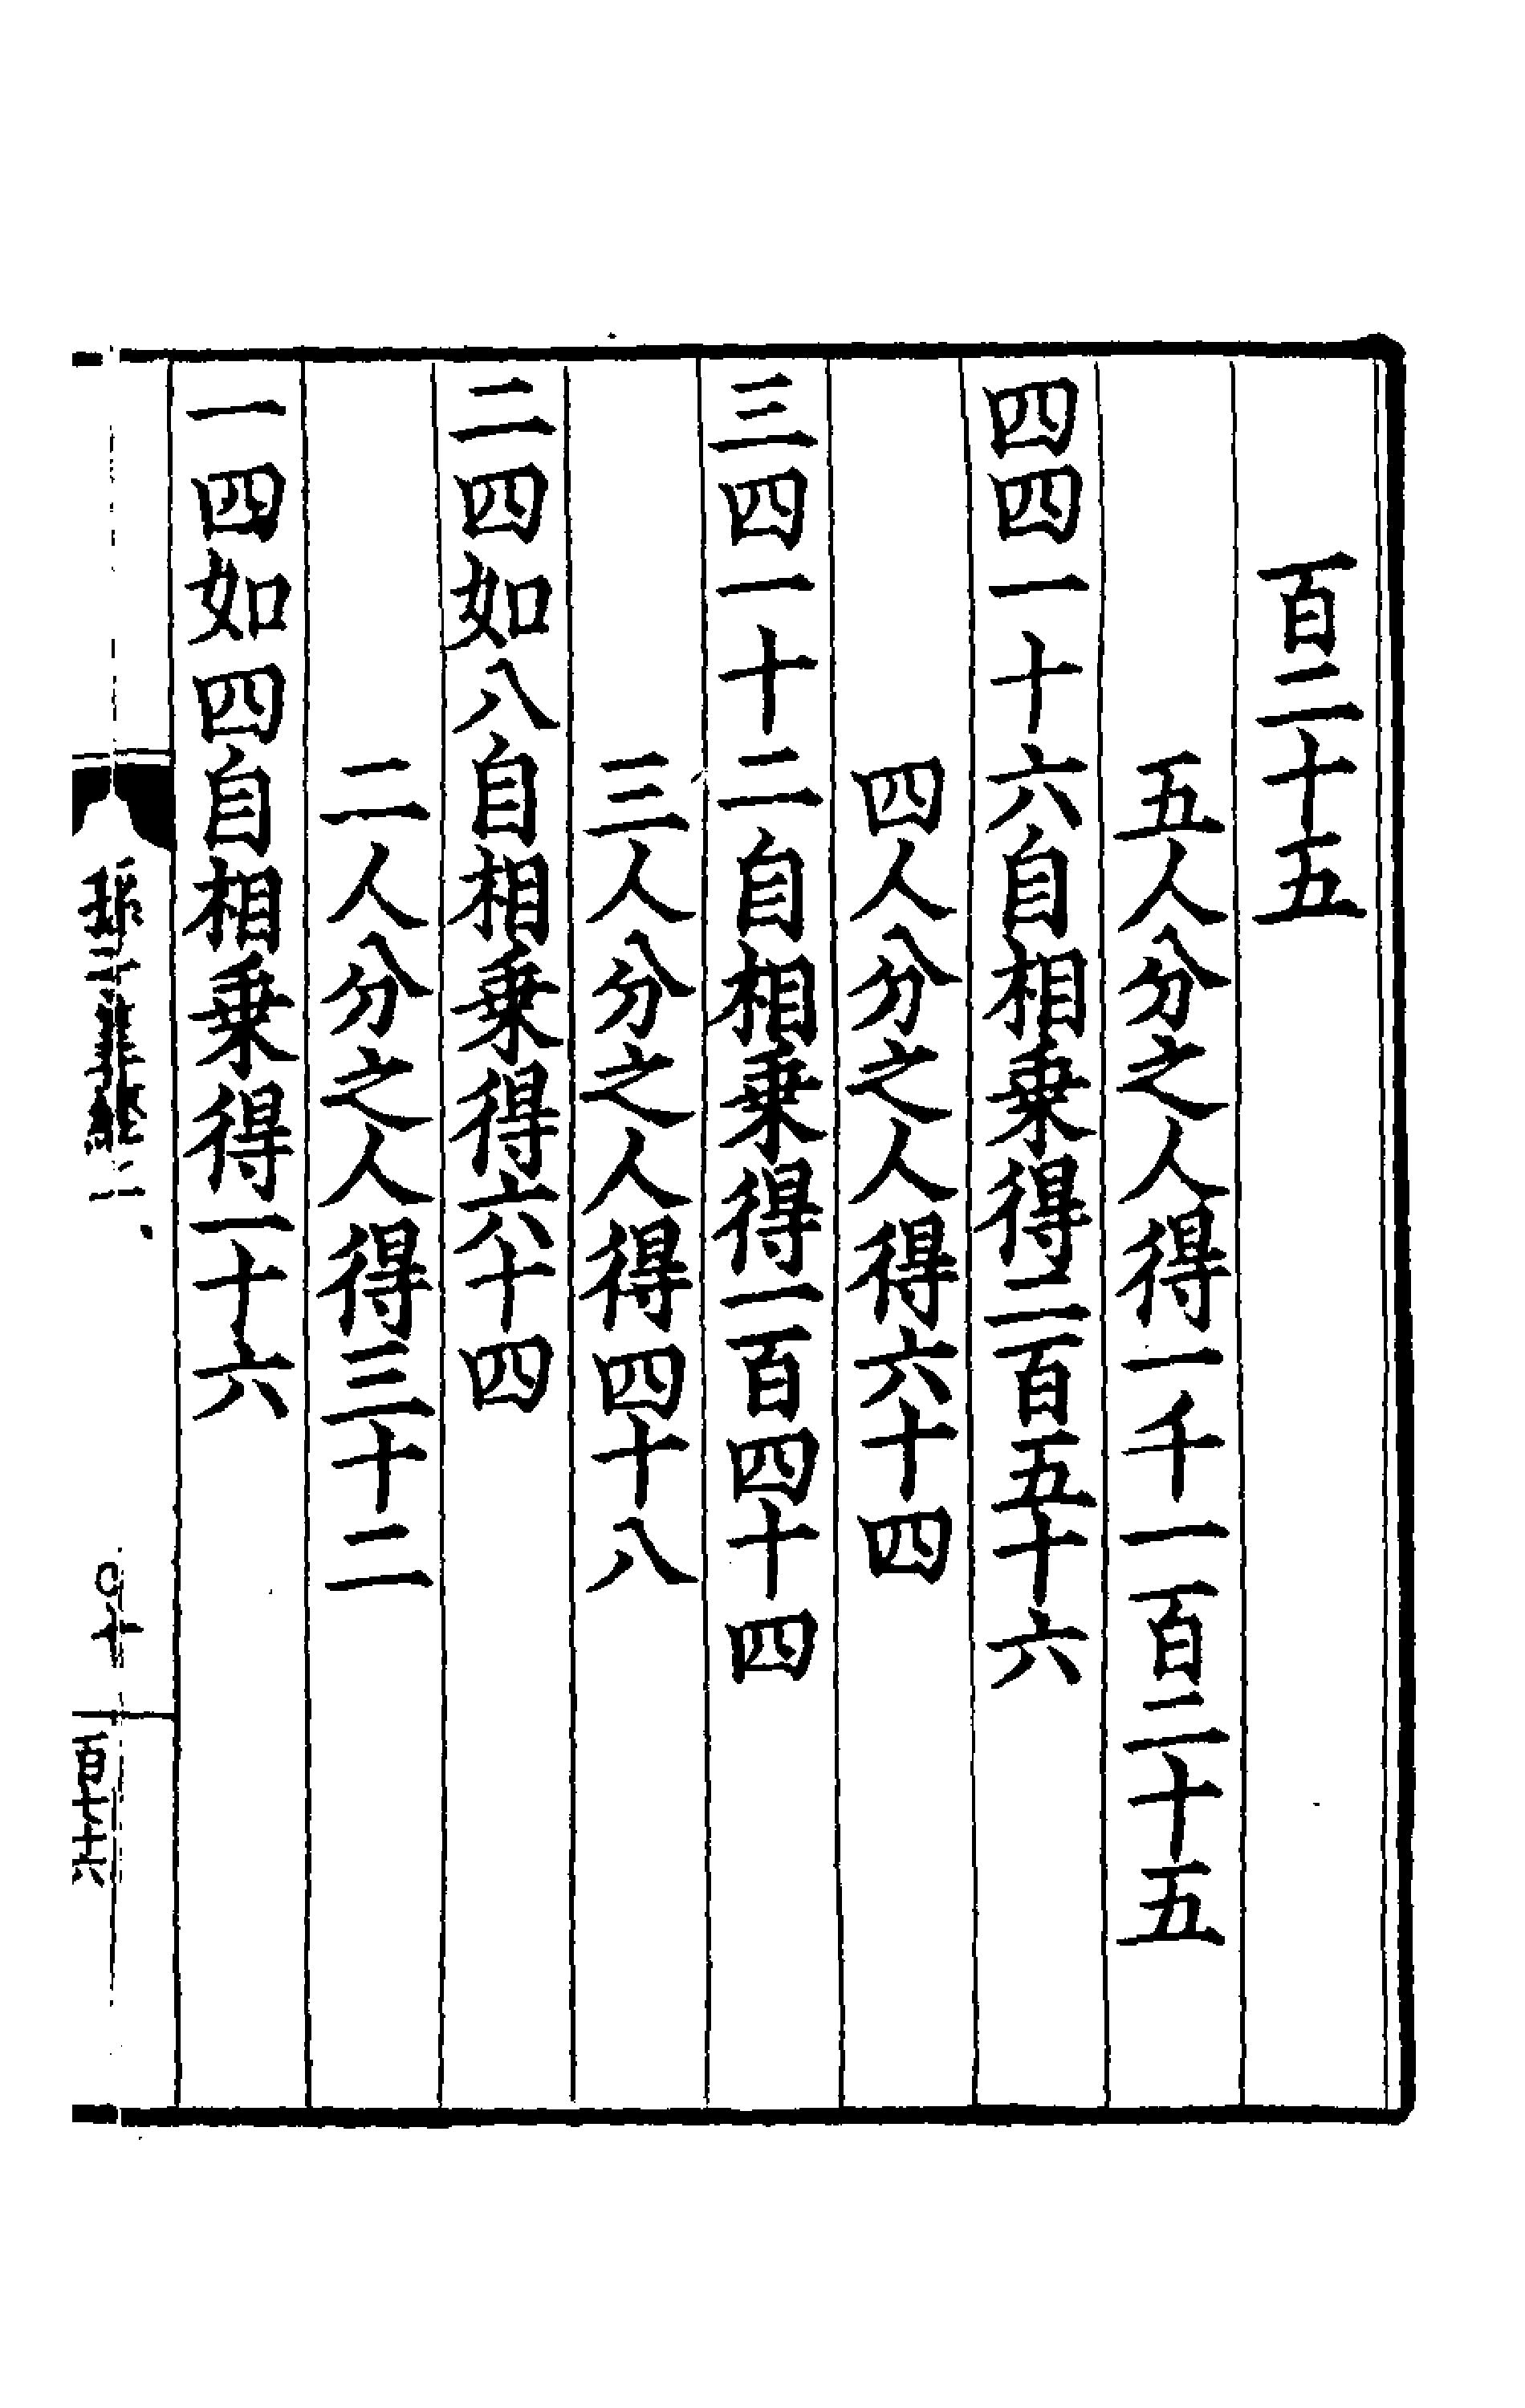 百二十五
五人分之人得一千一百二十五
四四一十六自相乗得二百五十六
四人分之人得六十四
三四一十二自相乗得一百四十四
三人分之人得四十八
二四如八自相乗得六十四
二人分之人得三十二
一四如四自相乗得一十六